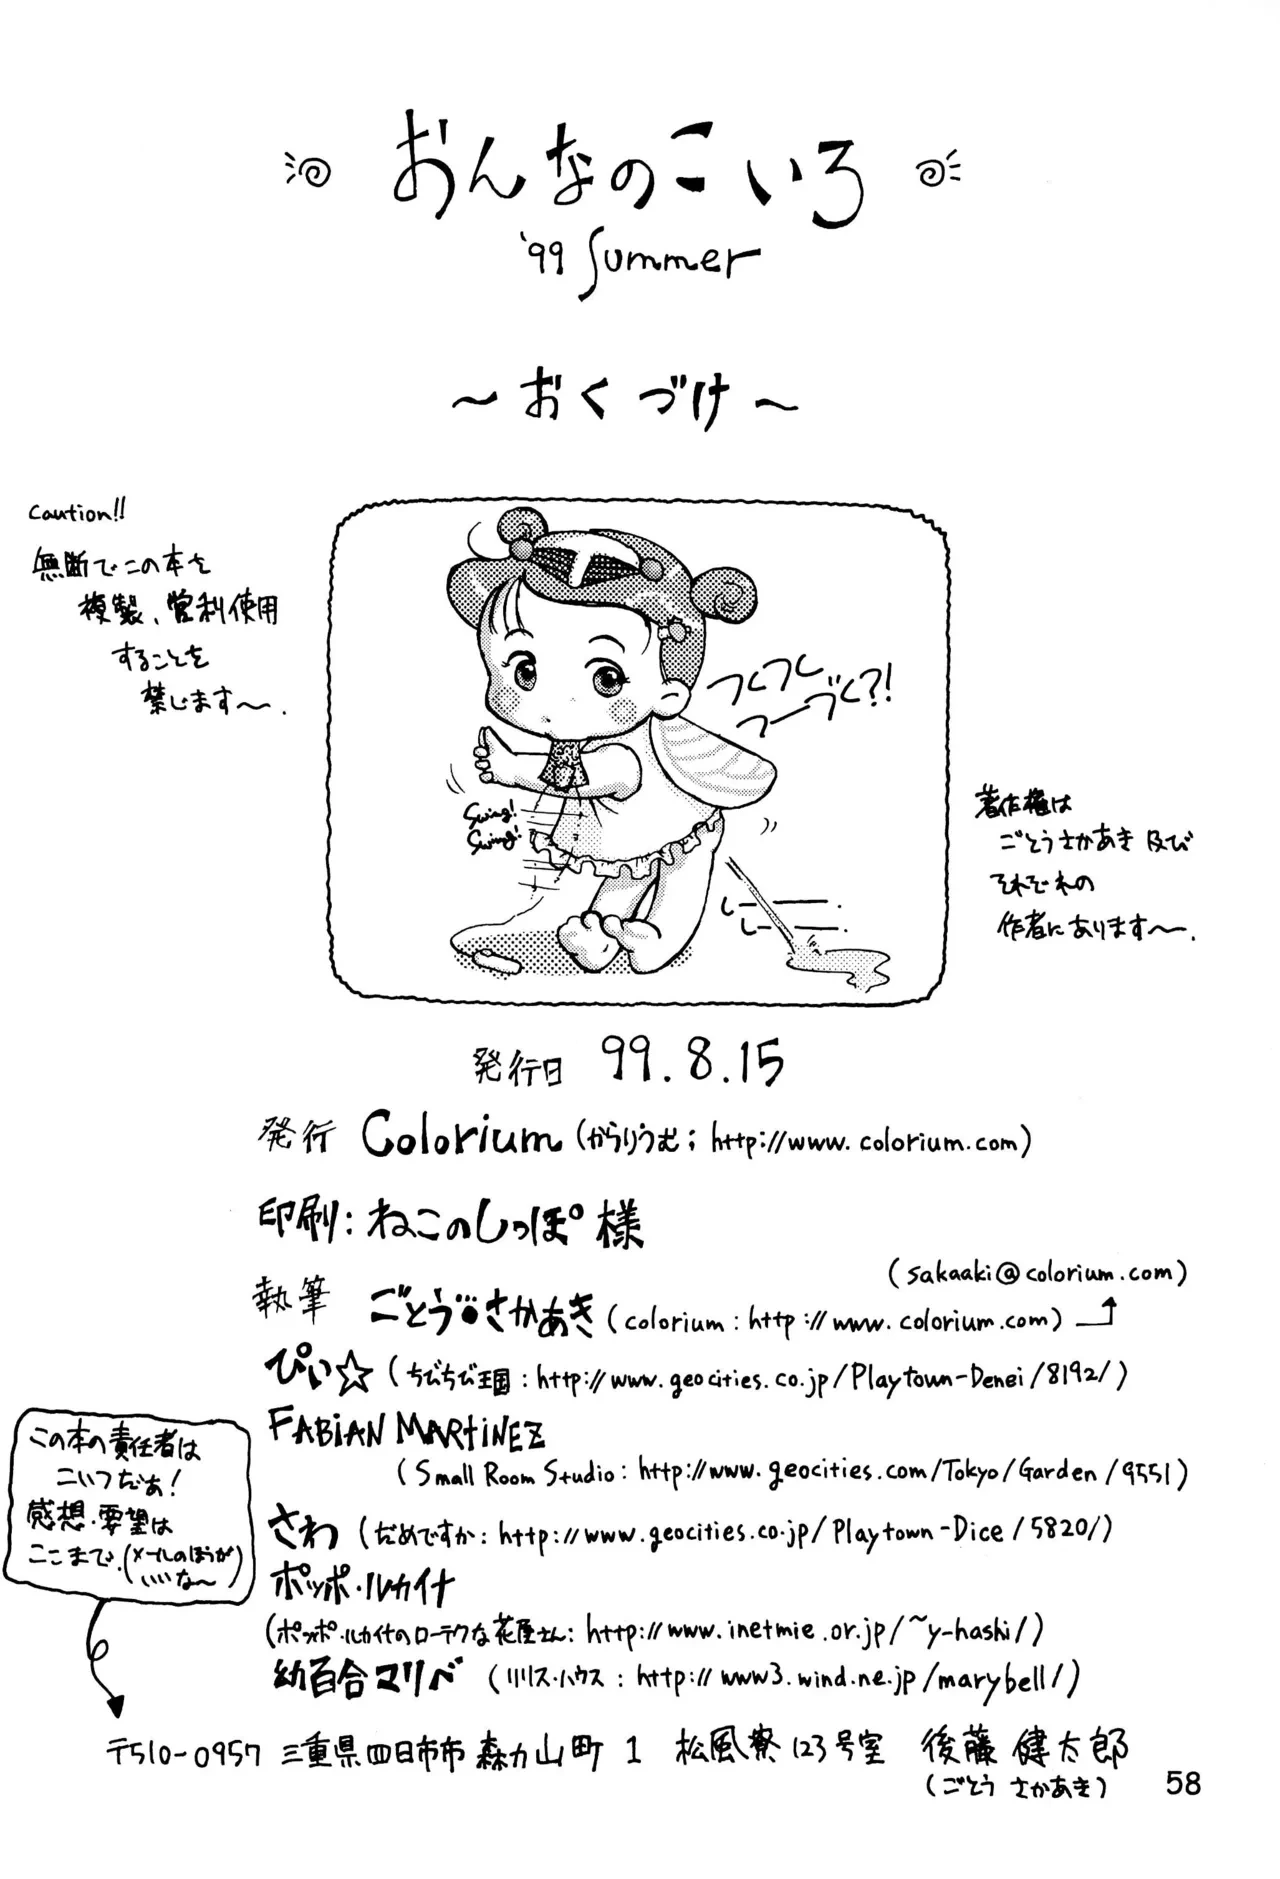 おんなのこいろ
'99 Summer
～おくづけ～
Caution!!
無断でこの本を
複製、営利使用
することを
禁じます～.
つくつく
つーづく?!
Swing!
Swing!
しー
しー
著作権は
ごとうさかあき及び
それぞれの
作者にあります～.
発行日 99.8.15
発行 Colorium (からりうむ; http://www.colorium.com)
印刷: ねこのしっぽ様
(sakaaki@colorium.com)
執筆 ごとう・さかあき (colorium: http://www.colorium.com)
ぴい☆ (ちびちび王国: http://www.geocities.co.jp/Playtown-Denei/8192/)
FABIAN MARTINEZ
(Small Room Studio: http://www.geocities.com/Tokyo/Garden/9551)
さわ (だめですか: http://www.geocities.co.jp/Playtown-Dice/5820/)
ポッポ・ルカイナ
(ポッポ・ルカイナのローテクな花屋さん: http://www.inetmie.or.jp/~y-hashi/)
幼百合マリベ (リリス・ハウス: http://www3.wind.ne.jp/marybell/)
この本の責任者は
こいつだぁ!
感想・要望は
ここまで.(メールのほうが
いいな～)
〒510-0957 三重県四日市市 森カ山町 1 松風寮123号室 後藤 健太郎
(ごとう さかあき)
58